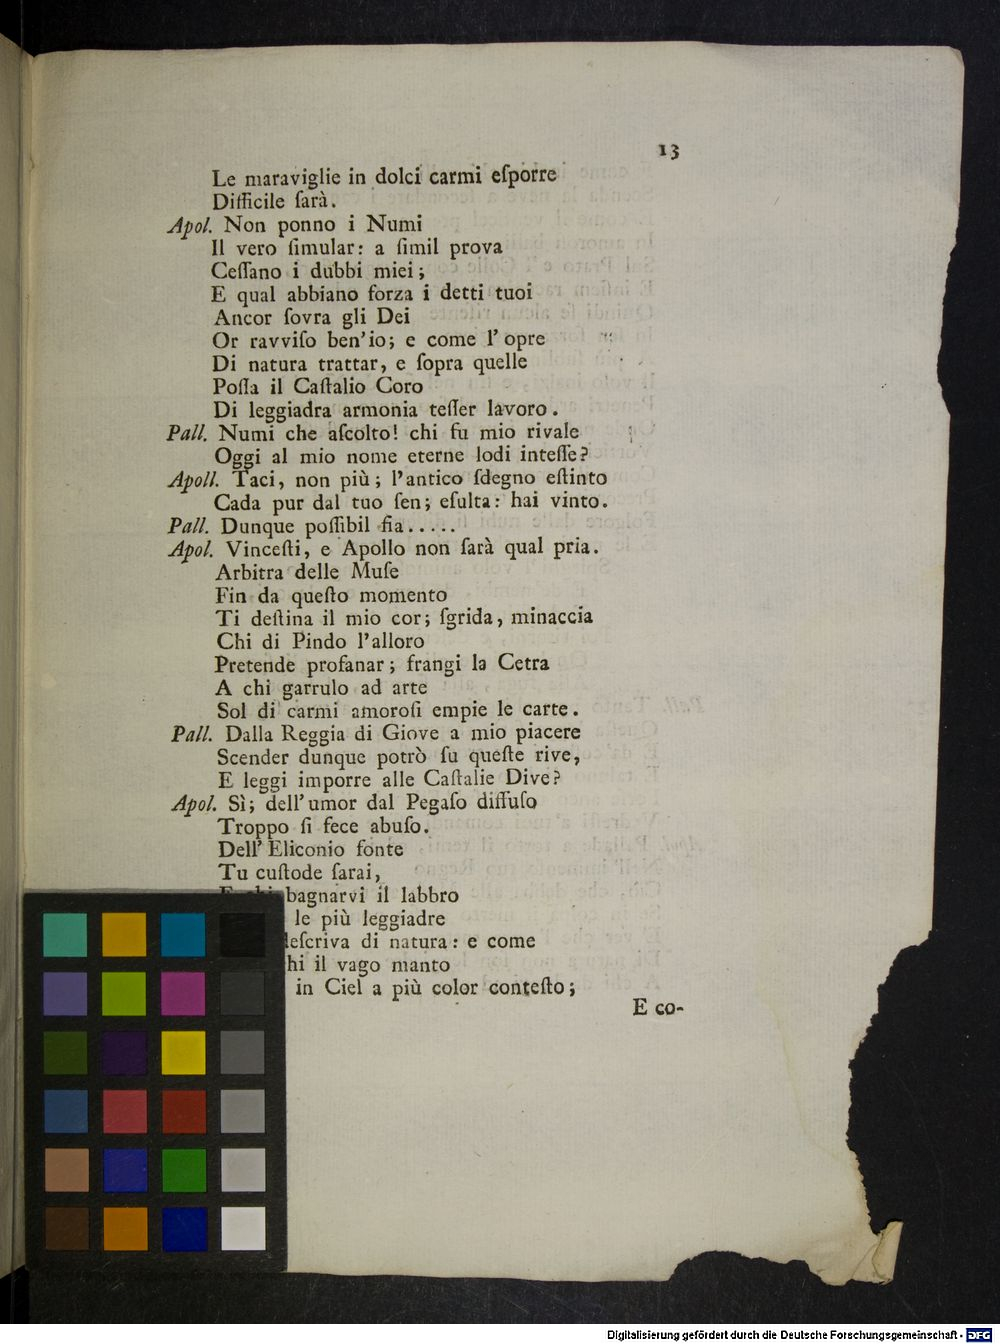 13
Le maraviglie in dolci carmi eſporre
Difficile ſarà.
Apol. Non ponno i Numi
Il vero ſimular: a ſimil prova
Ceſſano i dubbi miei;
E qual abbiano forza i detti tuoi
Ancor ſovra gli Dei
Or ravviſo ben'io; e come l'opre
Di natura trattar, e ſopra quelle
Poſſa il Caſtalio Coro
Di leggiadra armonia teſſer lavoro.
Pall. Numi che aſcolto! chi fu mio rivale
Oggi al mio nome eterne lodi inteſſe?
Apoll. Taci, non più; l'antico ſdegno eſtinto
Cada pur dal tuo ſen; eſulta: hai vinto.
Pall. Dunque poſſibil fia.....
Apol. Vinceſti, e Apollo non ſarà qual pria.
Arbitra delle Muſe
Fin da queſto momento
Ti deſtina il mio cor; ſgrida, minaccia
Chi di Pindo l'alloro
Pretende profanar; frangi la Cetra
A chi garrulo ad arte
Sol di carmi amoroſi empie le carte.
Pall. Dalla Reggia di Giove a mio piacere
Scender dunque potrò ſu queſte rive,
E leggi imporre alle Caſtalie Dive?
Apol. Sì; dell'umor dal Pegaſo diffuſo
Troppo ſi fece abuſo.
Dell'Eliconio fonte
Tu cuſtode ſarai,
bagnarvi il labbro
le più leggiadre
deſcriva di natura: e come
il vago manto
in Ciel a più color conteſto;
E co-
Digitalisierung gefördert durch die Deutsche Forschungsgemeinschaft - DFG